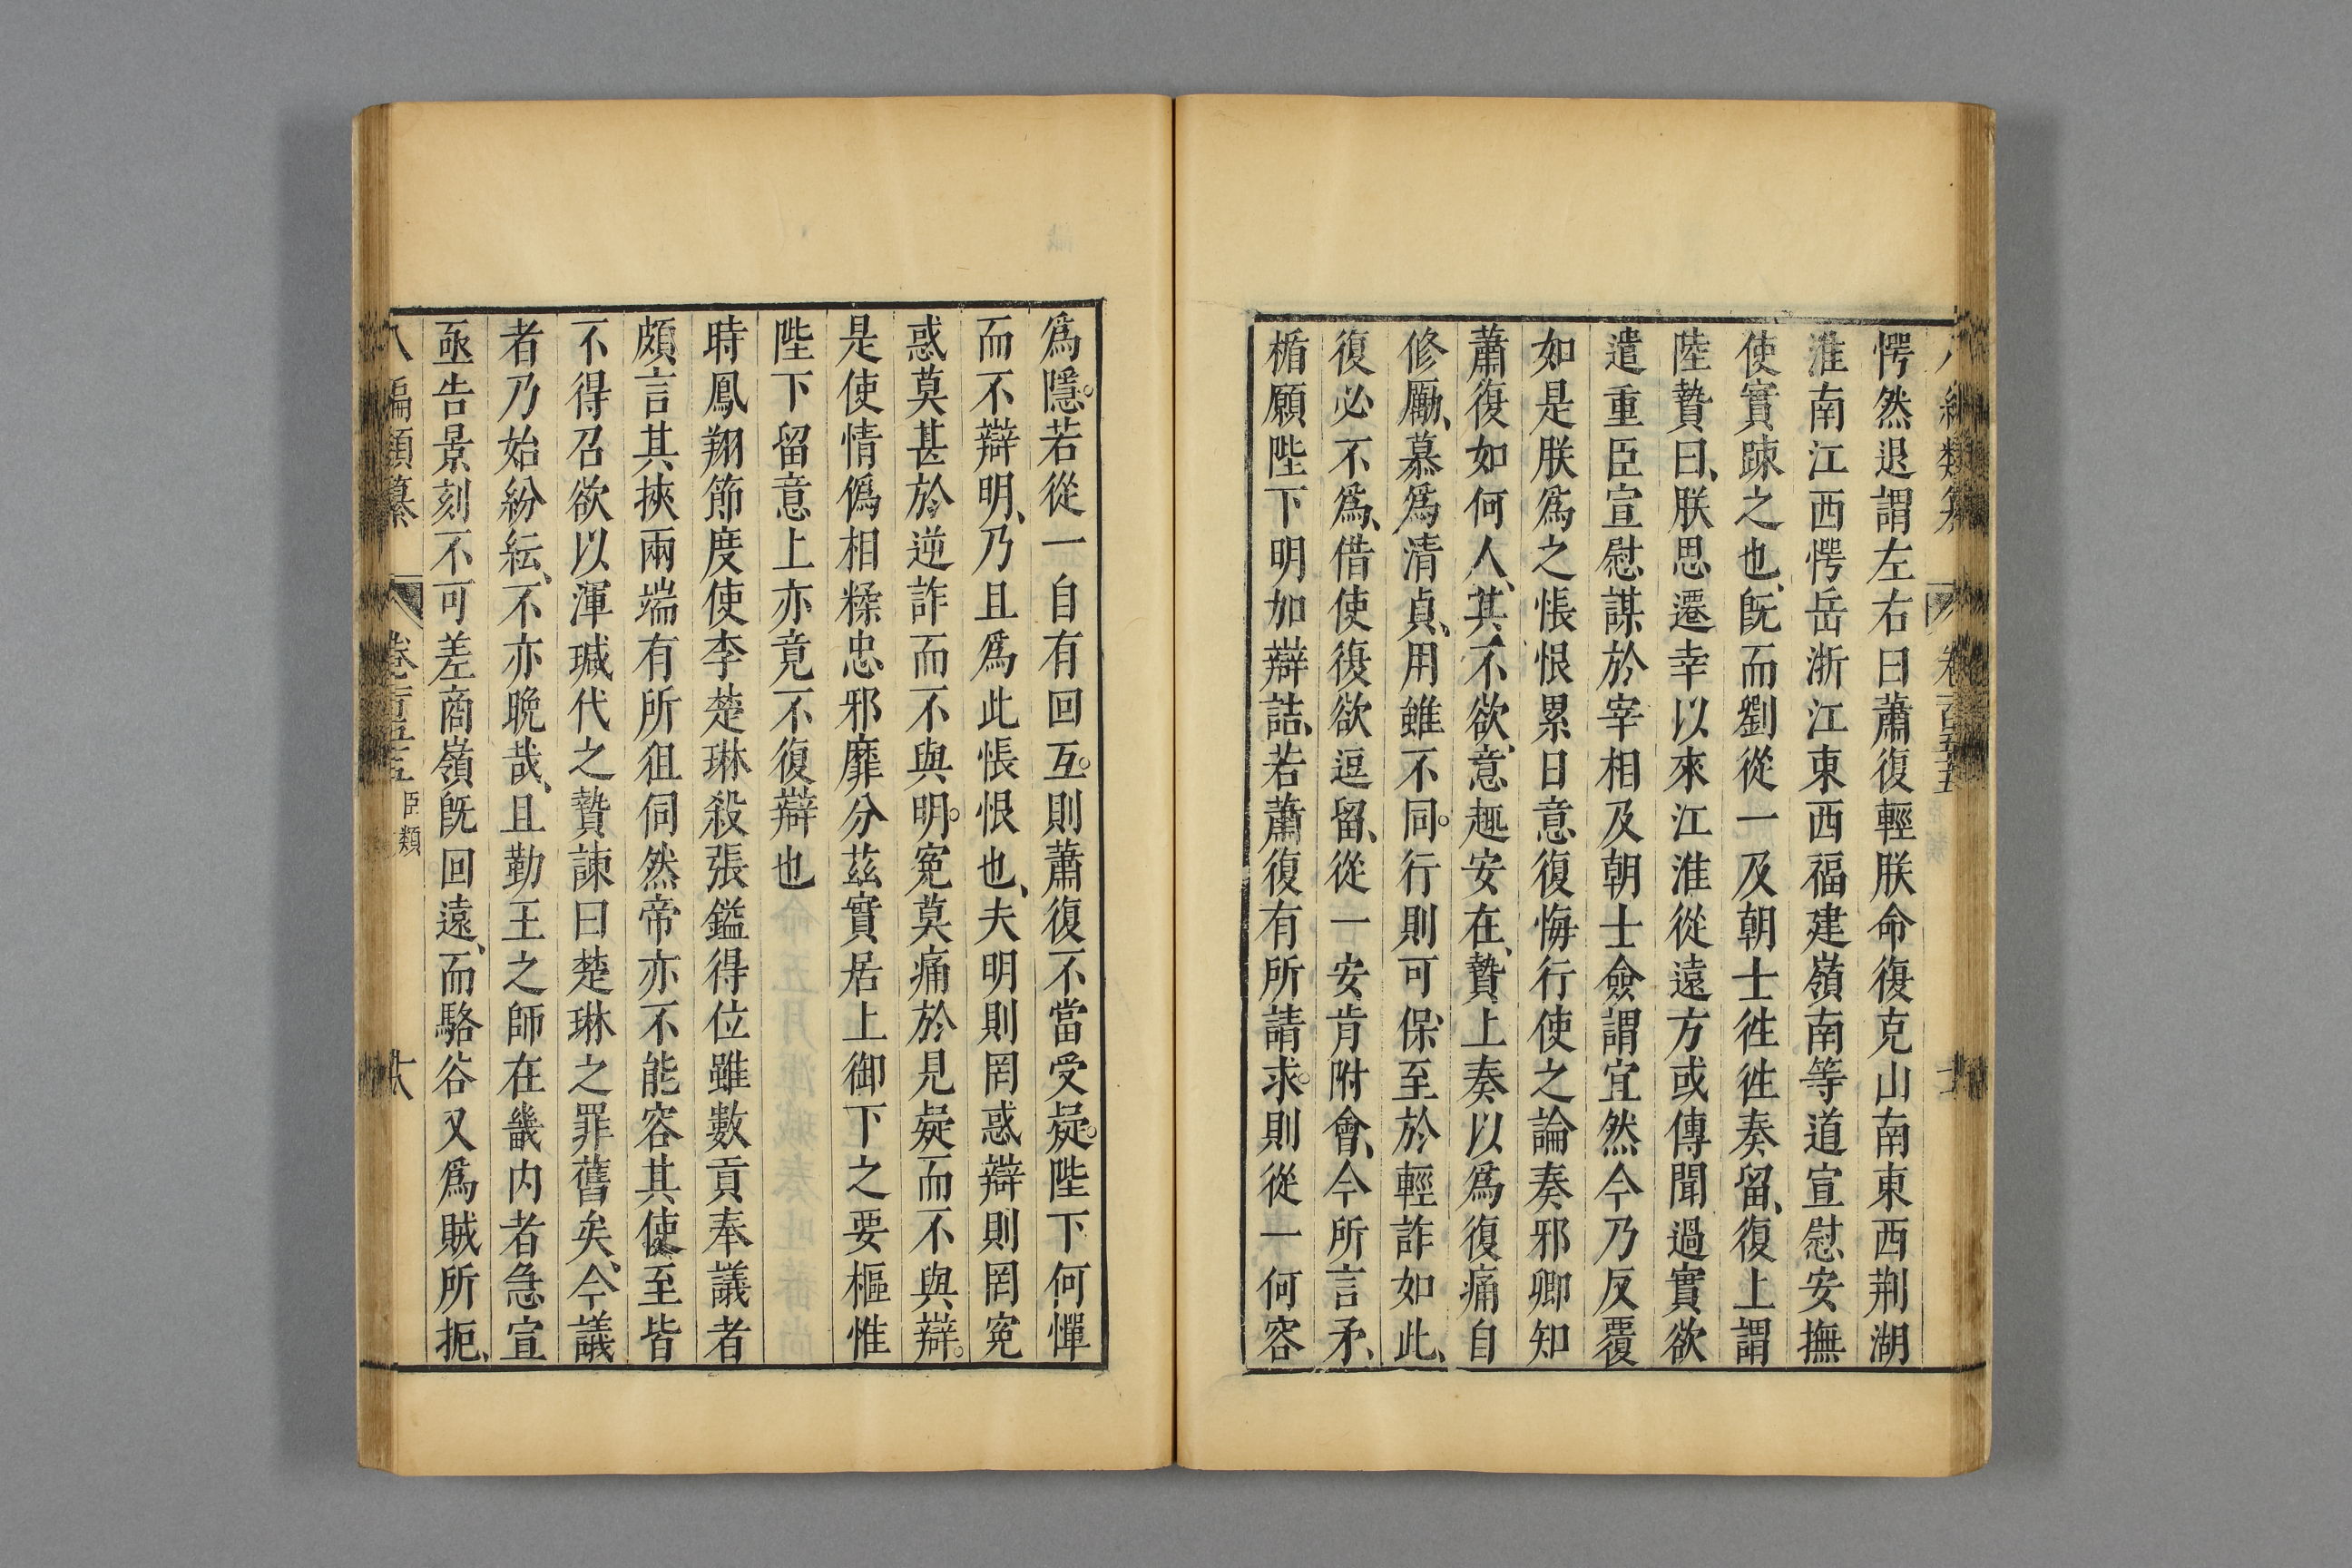 愕然退謂左右曰蕭復輕朕命復克山南東西荆湖
淮南江西愕岳浙江東西福建嶺南等道宣慰安撫
使實踈之也旣而劉從一及朝士徃徃奏留復上謂
陸贄曰朕思遷幸以來江淮從遠方或傳聞過實欲
遣重臣宣慰謀於宰相及朝士僉謂宜然今乃反覆
如是朕爲之悵恨累日意復悔行使之論奏邪卿知
蕭復如何人其不欲意趣安在贄上奏以爲復痛自
修勵慕爲清貞用雖不同行則可保至於輕詐如此
復必不爲借使復欲逗留從一安肯附會今所言矛
楯願陛下明加辯詰若蕭復有所請求則從一何容
爲隱若從一自有回互則蕭復不當受疑陛下何憚
而不辯明乃且爲此悵恨也夫明則罔惑辯則罔寃
惑莫甚於逆詐而不與明寃莫痛於見疑而不與辯
是使情僞相糅忠邪靡分茲實居上御下之要樞惟
陛下留意上亦竟不復辯也
時鳳翔節度使李楚琳殺張鎰得位雖數貢奉議者
頗言其挾兩端有所徂伺然帝亦不能容其使至皆
不得召欲以渾瑊代之贄諫曰楚琳之罪舊矣今議
者乃始紛紜不亦晚哉且勤王之師在畿内者急宣
亟告景刻不可差商嶺旣回遠而駱谷又爲賊所扼
八編類纂 卷百五十五 臣類 十六